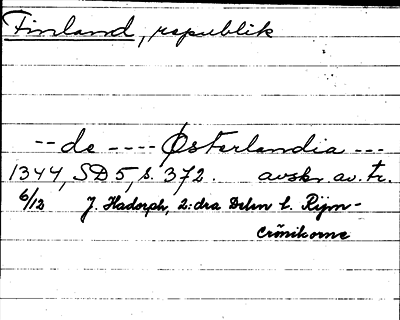 Finland, republik
--de ---- Østerlandia ---
1344, SD 5, s. 372. avskr. av. tr.
6/12 J. Hadorph, 2:dra Delen t. Rijm-
Crönikorne